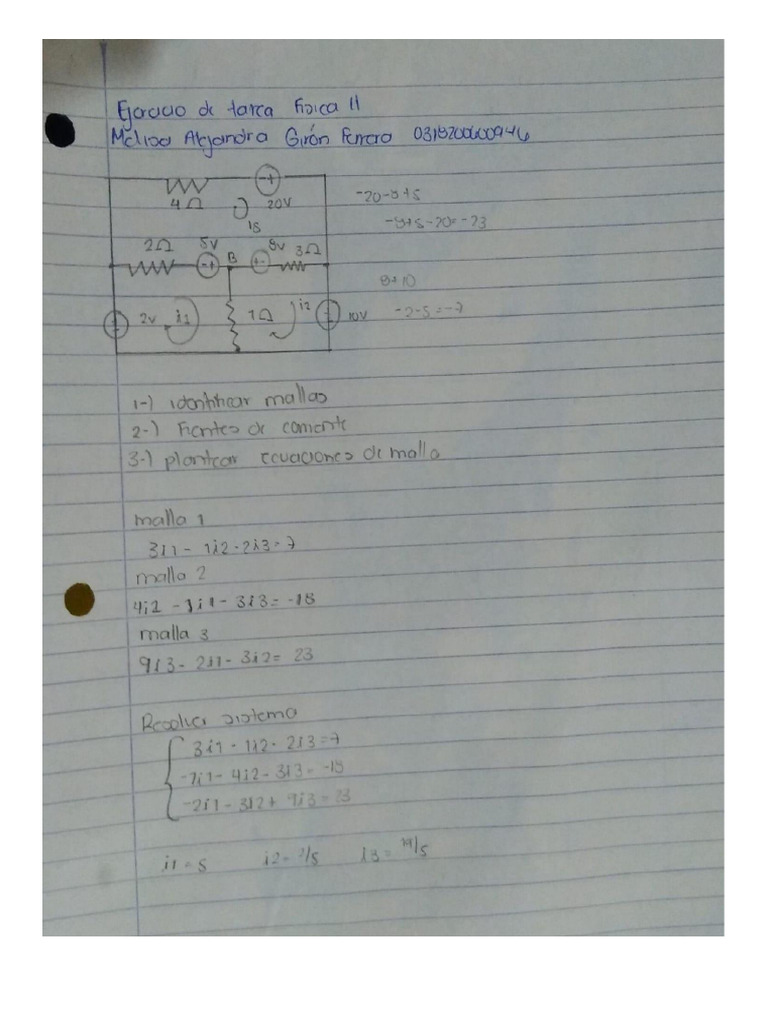 Ejercicio de tarea Fisica II
Melissa Alejandra Girón Ferrera
4Ω 20V
-20-8+5
-8+5-20=-23
2Ω 5V B 8v 3Ω
8+10
2v i1 1Ω i2 10V -2-5=-7
1-) identificar mallas
2-) Fuentes de corriente
3-) plantear ecuaciones de malla
malla 1
3i1 - 1i2 - 2i3 = 7
malla 2
4i2 - 1i1 - 3i3 = -18
malla 3
9i3 - 2i1 - 3i2 = 23
Resolver sistema
3i1 - 1i2 - 2i3 = 7
-1i1 - 4i2 - 3i3 = -18
-2i1 - 3i2 + 9i3 = 23
i1 = 5 i2 = /5 i3 = 19/5